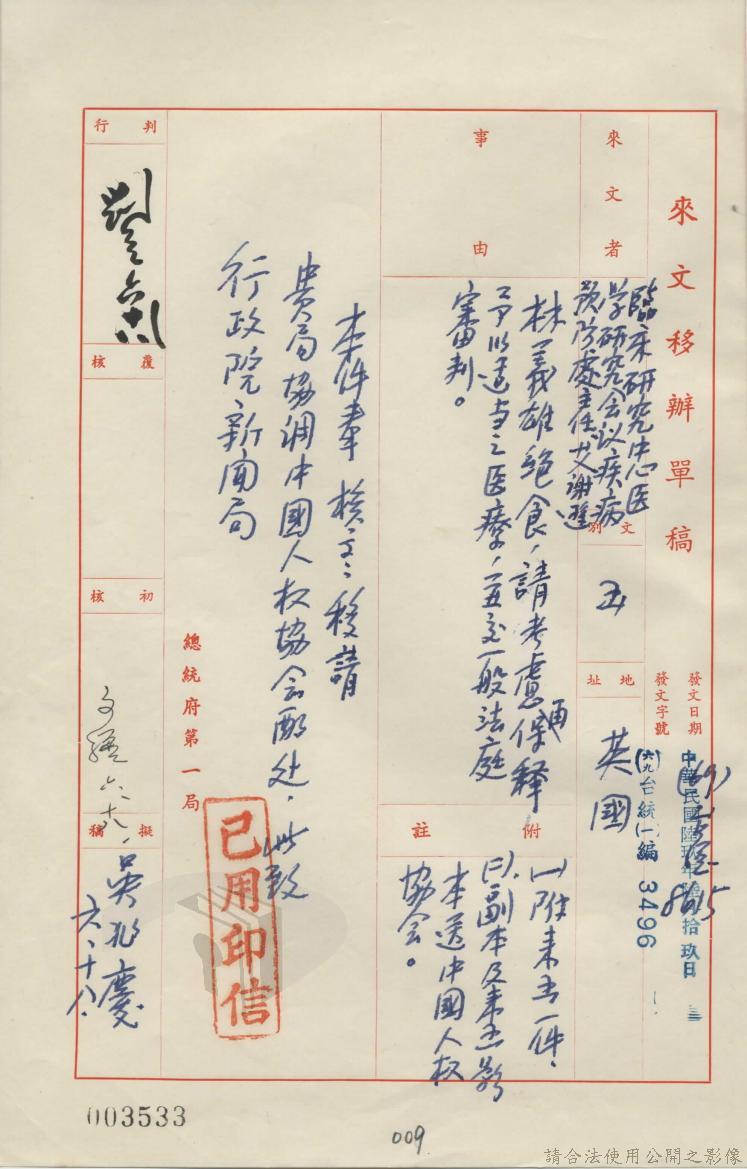 來文移辦單稿
發文日期
中華民國陸玖年陸月拾玖日
發文字號
(六九)台統(一)編 3496
來文者
臨床研究中心医
学研究会议疾病
預防處主任艾謝遜
文別
函
地址
英國
事由
林義雄絕食,請考慮保釋
予以適当之医療,並交普通一般法庭
審判。
附註
(一)附来函一件。
(二)副本及来函影
本送中國人权
協会。
本件奉 核交移請
貴局協調中國人权協会酌处。此致
行政院新聞局
總統府第一局
已用印信
判行
覆核
初核
六六
擬稿
吳
慶
六、十八、
003533
009
請合法使用公開之影像